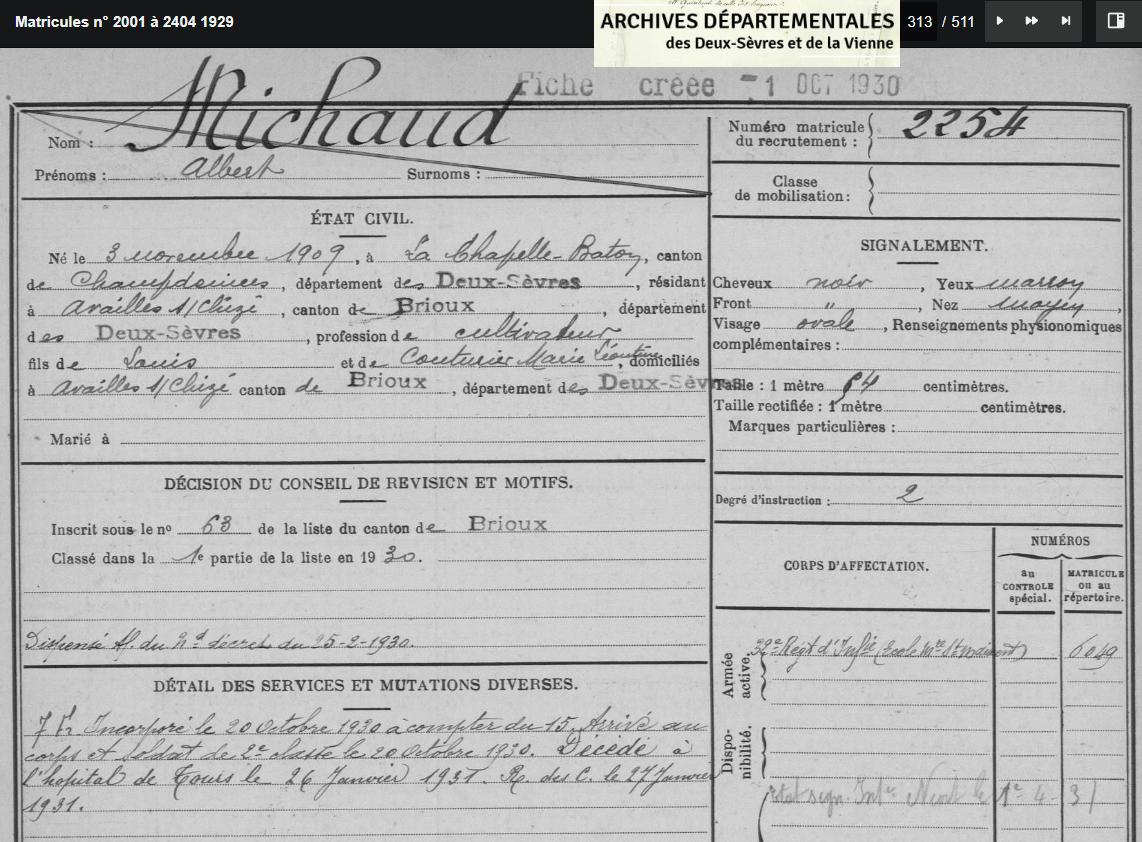 Matricules n° 2001 à 2404 1929
ARCHIVES DÉPARTEMENTALES
des Deux-Sèvres et de la Vienne
313 / 511
Fiche créée - 1 OCT 1930
Nom : Michaud
Prénoms : Albert Surnoms :
Numéro matricule du recrutement : 2254
Classe de mobilisation :
ÉTAT CIVIL.
Né le 3 novembre 1909, à La Chapelle-Baton, canton
de Champdeniers, département des Deux-Sèvres, résidant
à Availles s/Chizé, canton de Brioux, département
des Deux-Sèvres, profession de cultivateur
fils de Louis et de Couturier Marie Léontine, domiciliés
à Availles s/Chizé canton de Brioux, département des Deux-Sèvres
Marié à
SIGNALEMENT.
Cheveux noir, Yeux marron
Front ", Nez moyen,
Visage ovale, Renseignements physionomiques
complémentaires :
Taille : 1 mètre 64 centimètres.
Taille rectifiée : 1 mètre centimètres.
Marques particulières :
Degré d'instruction : 2
DÉCISION DU CONSEIL DE REVISION ET MOTIFS.
Inscrit sous le no 63 de la liste du canton de Brioux
Classé dans la 1e partie de la liste en 1930.
du décret du 25-2-1930.
DÉTAIL DES SERVICES ET MUTATIONS DIVERSES.
Incorporé le 20 Octobre 1930 à compter du 15. Arrivé au
corps et soldat de 2e classe le 20 Octobre 1930. Décédé à
l'hôpital de Tours le 26 Janvier 1931. R. des C. le 27 Janvier
1931.
CORPS D'AFFECTATION.
NUMÉROS
au CONTROLE spécial.
MATRICULE ou au répertoire.
Armée active.
32e Régt d'Infie (Ecole Mre St Maixent) 6049
Dispo-
nibilité.
Niort le 1e-4-31